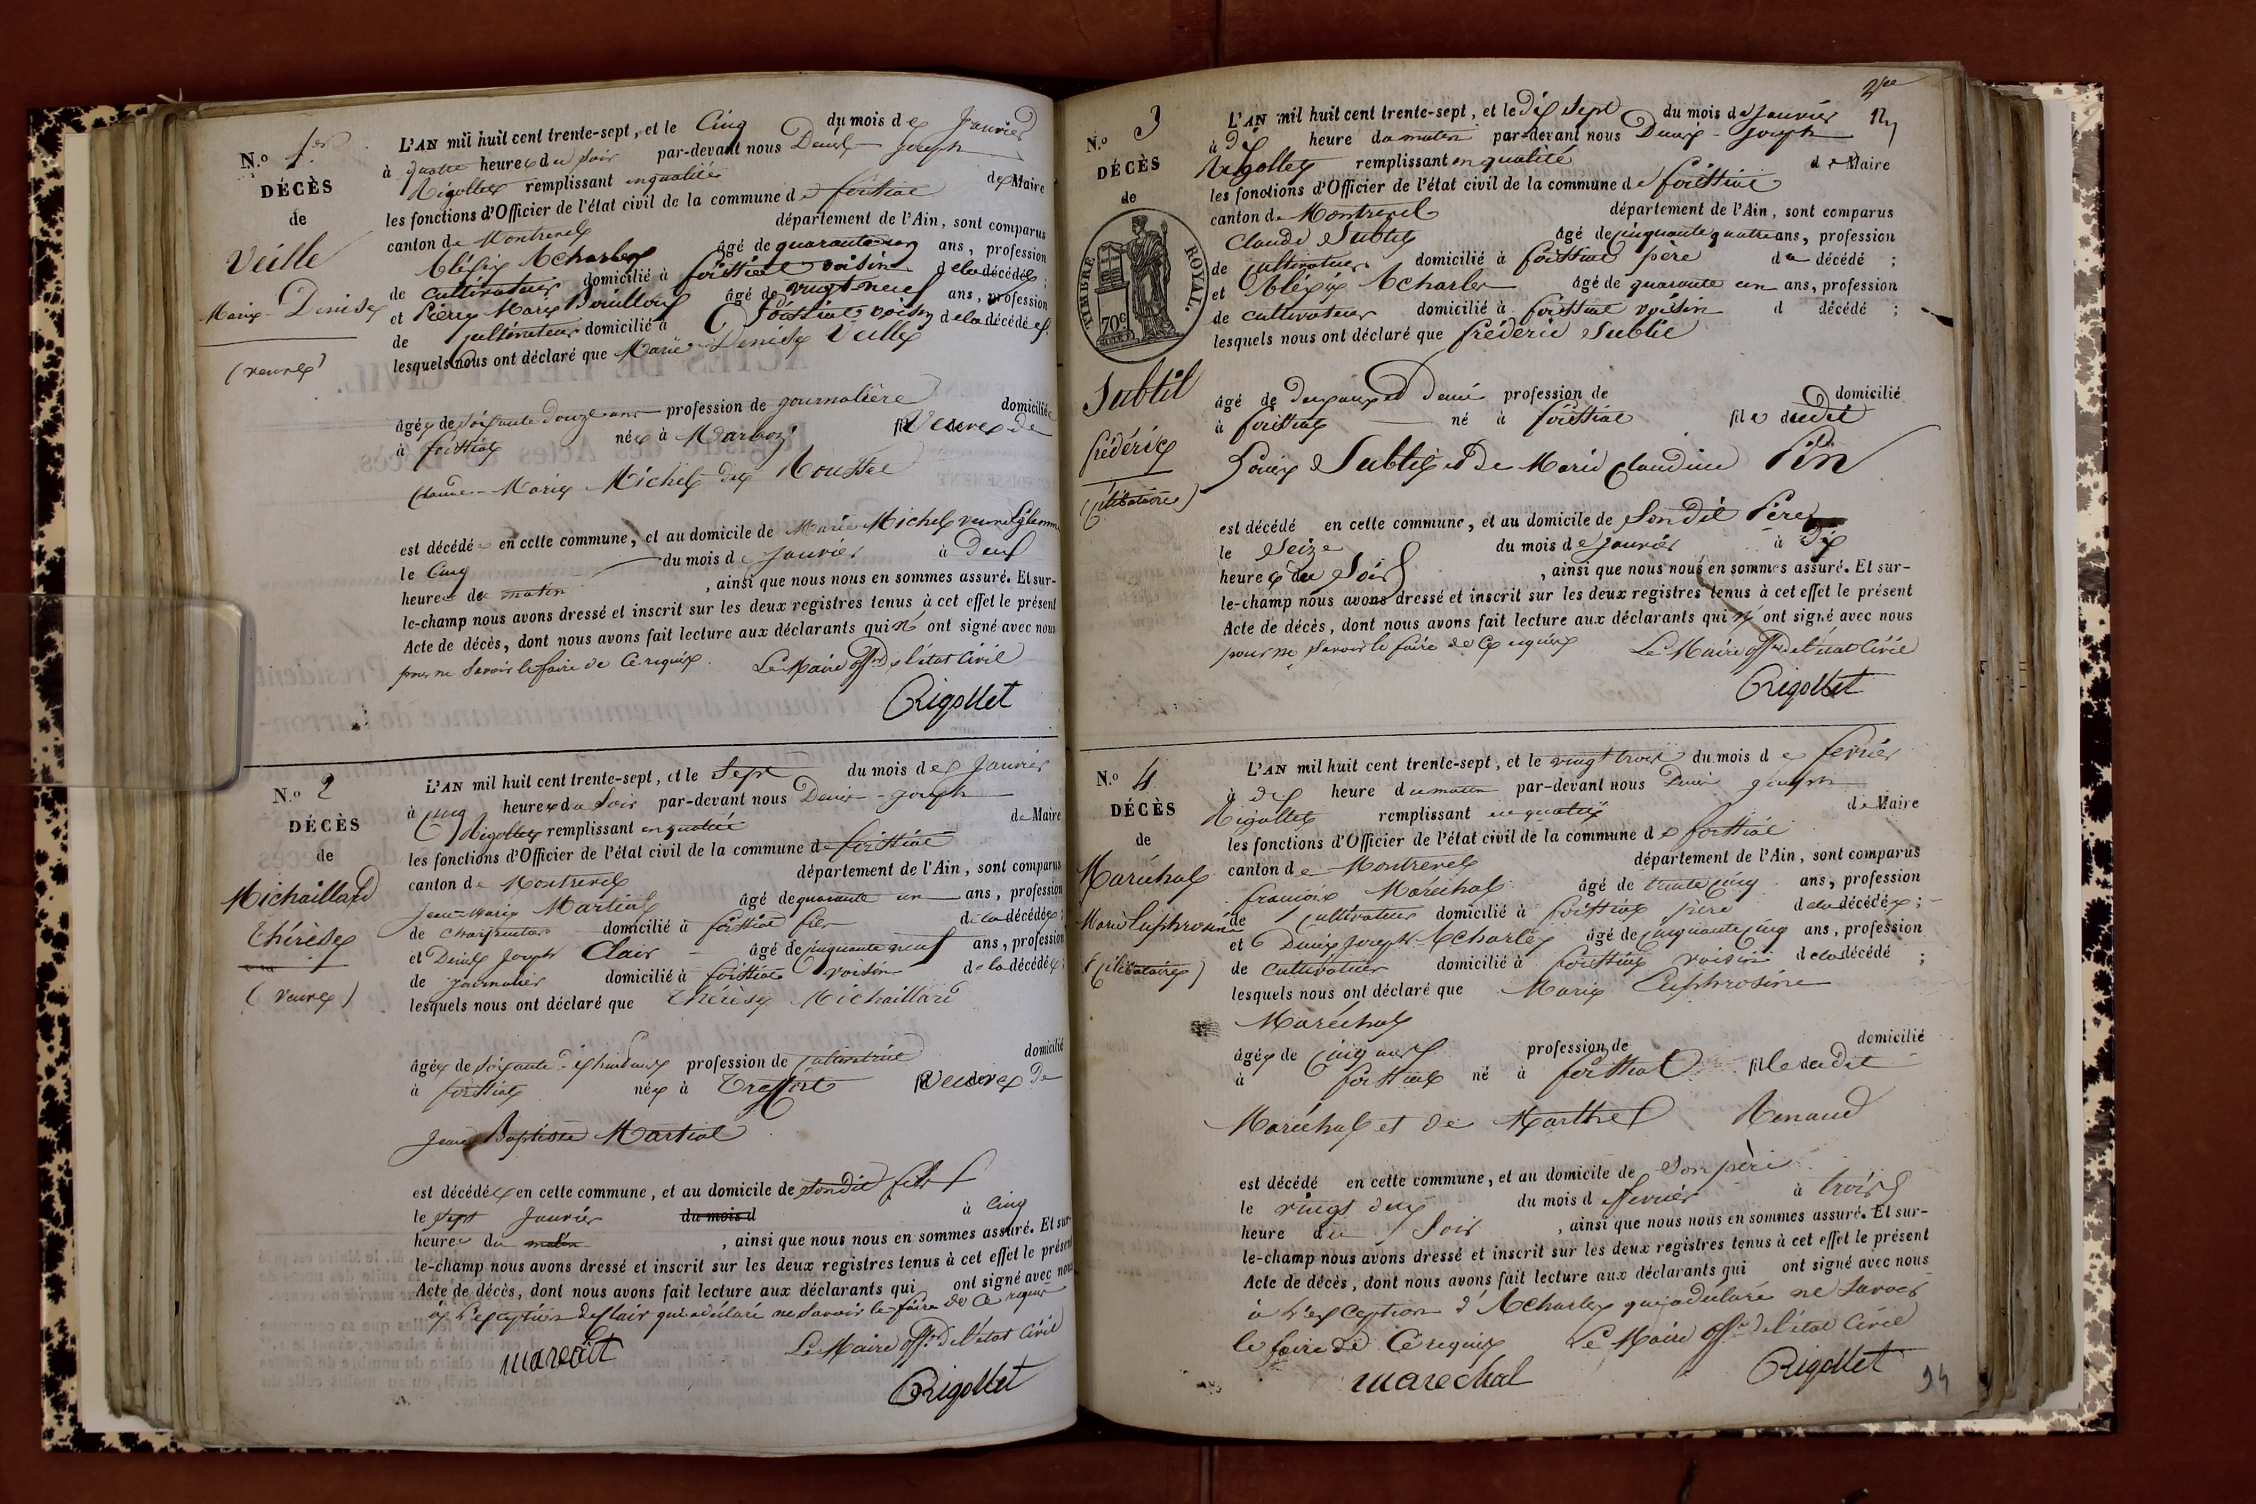 N.º 1.er
DÉCÈS
de
Veille
Marie Denise
(veuve)
L'AN mil huit cent trente-sept, et le Cinq du mois de Janvier
à quatre heures du soir par-devant nous Denis Joseph
Rigollet remplissant en qualité de Maire
les fonctions d'Officier de l'état civil de la commune de foissiat
canton de Montrevel département de l'Ain, sont comparus
Alexis Acharles âgé de quarante un ans, profession
de cultivateur domicilié à foissiat voisin de la décédée ;
et Pierre Marie Bouilloux âgé de vingt neuf ans, profession
de cultivateur domicilié à foissiat voisin de la décédée ;
lesquels nous ont déclaré que Marie Denise Veille
âgée de soixante douze ans profession de journalière domiciliée
à foissiat née à Marboz veuve de
Claude Marie Michel dit Rousset
est décédée en cette commune, et au domicile de Marie Michel veuve
le Cinq du mois de janvier à deux
heures du matin, ainsi que nous nous en sommes assuré. Et sur-
le-champ nous avons dressé et inscrit sur les deux registres tenus à cet effet le présent
Acte de décès, dont nous avons fait lecture aux déclarants qui n' ont signé avec nous
pour ne savoir le faire de ce requis. Le Maire off. de l'état civil
Rigollet
N.º 2
DÉCÈS
de
Michaillard
Thérèse
(veuve)
L'AN mil huit cent trente-sept, et le Sept du mois de Janvier
à Cinq heures du soir par-devant nous Denis Joseph
Rigollet remplissant en qualité de Maire
les fonctions d'Officier de l'état civil de la commune de foissiat
canton de Montrevel département de l'Ain, sont comparus
Jean-Marie Martial âgé de quarante un ans, profession
de charpentier domicilié à foissiat fils de la décédée ;
et Denis Joseph Clair âgé de cinquante neuf ans, profession
de journalier domicilié à foissiat voisin de la décédée ;
lesquels nous ont déclaré que Thérèse Michaillard
âgée de soixante dix huit ans profession de cultivatrice domicilié
à foissiat née à Treffort veuve de
Jean Baptiste Martial
est décédée en cette commune, et au domicile de sondit fils
le sept Janvier du mois d à cinq
heures du matin, ainsi que nous nous en sommes assuré. Et sur-
le-champ nous avons dressé et inscrit sur les deux registres tenus à cet effet le présent
Acte de décès, dont nous avons fait lecture aux déclarants qui ont signé avec nous
à l'exception de Clair qui a déclaré ne savoir le faire de ce requis
Le Maire off. de l'état Civil
Rigollet
2me
N.º 3
DÉCÈS
de
TIMBRE ROYAL.
70c
Subtil
frédéric
(célibataire)
L'AN mil huit cent trente-sept, et le dix sept du mois de Janvier
à dix heure du matin par-devant nous Denis Joseph
Rigollet remplissant en qualité de Maire
les fonctions d'Officier de l'état civil de la commune de foissiat
canton de Montrevel département de l'Ain, sont comparus
Claude Subtil âgé de cinquante quatre ans, profession
de cultivateur domicilié à foissiat père du décédé ;
et Alexis Acharles âgé de quarante un ans, profession
de cultivateur domicilié à foissiat voisin d décédé ;
lesquels nous ont déclaré que frédéric Subtil
âgé de deux ans et demi profession de domicilié
à foissiat né à foissiat fils dudit
Subtil et de Marie Claudine Pin
est décédé en cette commune, et au domicile de Son dit Père
le Seize du mois de janvier à dix
heures du Soir, ainsi que nous nous en sommes assuré. Et sur-
le-champ nous avons dressé et inscrit sur les deux registres tenus à cet effet le présent
Acte de décès, dont nous avons fait lecture aux déclarants qui n' ont signé avec nous
pour ne savoir le faire de ce requis Le Maire off. de l'état Civil
Rigollet
N.º 4
DÉCÈS
de
Maréchal
Marie Euphrosine
(célibataire)
L'AN mil huit cent trente-sept, et le vingt trois du mois de fevrier
à dix heure du matin par-devant nous Denis Joseph
Rigollet remplissant en qualité de Maire
les fonctions d'Officier de l'état civil de la commune de foissiat
canton de Montrevel département de l'Ain, sont comparus
françois Maréchal âgé de trente cinq ans, profession
de cultivateur domicilié à foissiat père de la décédée ;
et Denis Joseph Acharles âgé de cinquante cinq ans, profession
de cultivateur domicilié à foissiat voisin de la décédé ;
lesquels nous ont déclaré que Marie Euphrosine
Maréchal
âgée de cinq ans profession de domicilié
à foissiat né à foissiat fille dudit
Maréchal et de Marthe Renaud
est décédé en cette commune, et au domicile de Son père
le vingt deux du mois d fevrier à trois
heure du Soir, ainsi que nous nous en sommes assuré. Et sur-
le-champ nous avons dressé et inscrit sur les deux registres tenus à cet effet le présent
Acte de décès, dont nous avons fait lecture aux déclarants qui ont signé avec nous
à l'exception d'Acharles qui a déclaré ne savoir
le faire de Ce requis Le Maire off. de l'état Civil
marechal Rigollet
94